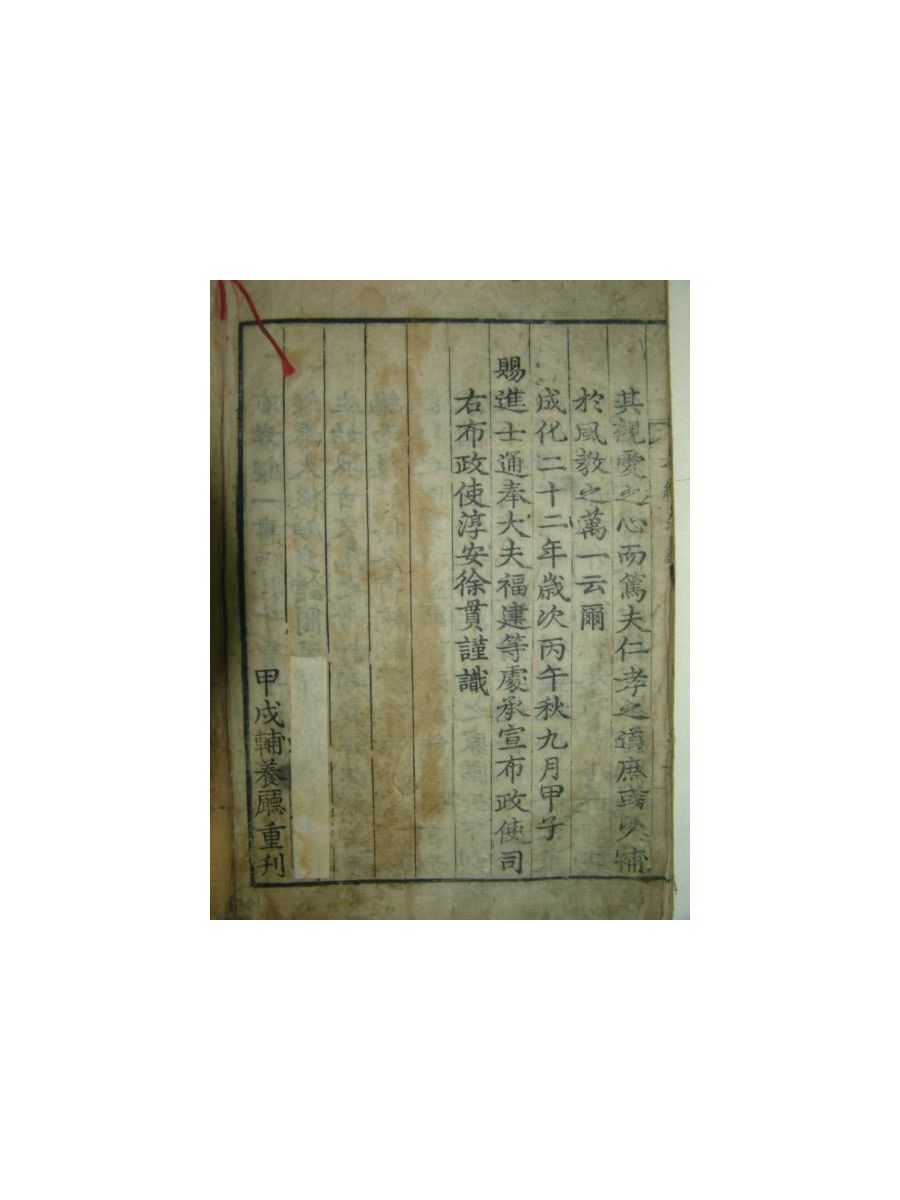 其親愛之心而篤夫仁孝之道庶或少補
於風教之萬一云爾
成化二十二年歲次丙午秋九月甲子
賜進士通奉大夫福建等處承宣布政使司
右布政使淳安徐貫謹識
甲戌輔養廳重刊